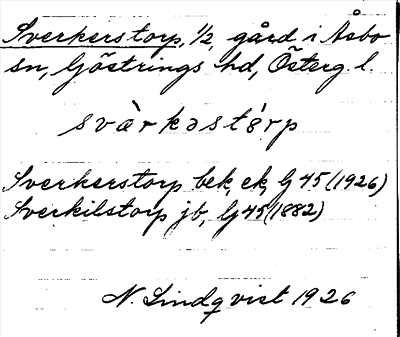 Sverkerstorp, 1/2, gård i Åsbo
sn, Göstrings hd, Österg l.
svàrkəstórp
Sverkerstorp bek, ek, G 45 (1926)
Sverkilstorp jb, G 45 (1882)
N. Lindqvist 1926